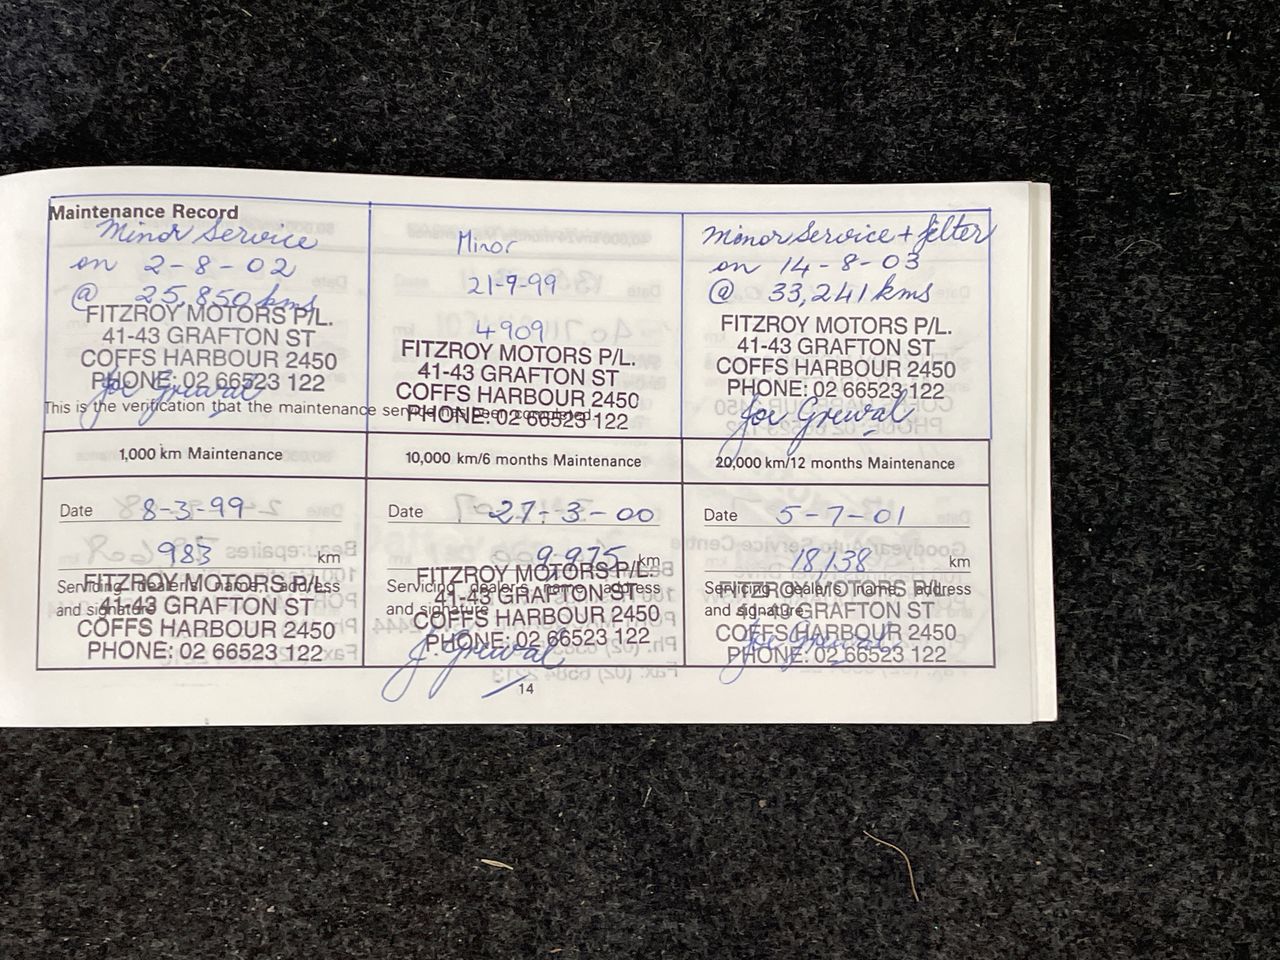 Maintenance Record
Minor Service
on 2-8-02
@ 25,850 kms
FITZROY MOTORS P/L.
41-43 GRAFTON ST
COFFS HARBOUR 2450
PHONE: 02 66523 122
Joe Grewal
Minor
21-9-99
4909
FITZROY MOTORS P/L.
41-43 GRAFTON ST
COFFS HARBOUR 2450
PHONE: 02 66523 122
Minor Service + filter
on 14-8-03
@ 33,241 kms
FITZROY MOTORS P/L.
41-43 GRAFTON ST
COFFS HARBOUR 2450
PHONE: 02 66523 122
Joe Grewal
This is the verification that the maintenance service has been completed.
1,000 km Maintenance
10,000 km/6 months Maintenance
20,000 km/12 months Maintenance
Date 8-3-99
983 km
Servicing dealer's name, address
and signature
FITZROY MOTORS P/L.
41-43 GRAFTON ST
COFFS HARBOUR 2450
PHONE: 02 66523 122
Date 27-3-00
9975 km
Servicing dealer's name, address
and signature
FITZROY MOTORS P/L.
41-43 GRAFTON ST
COFFS HARBOUR 2450
PHONE: 02 66523 122
J. Grewal
Date 5-7-01
18,138 km
Servicing dealer's name, address
and signature
FITZROY MOTORS P/L.
41-43 GRAFTON ST
COFFS HARBOUR 2450
PHONE: 02 66523 122
Joe Grewal
14